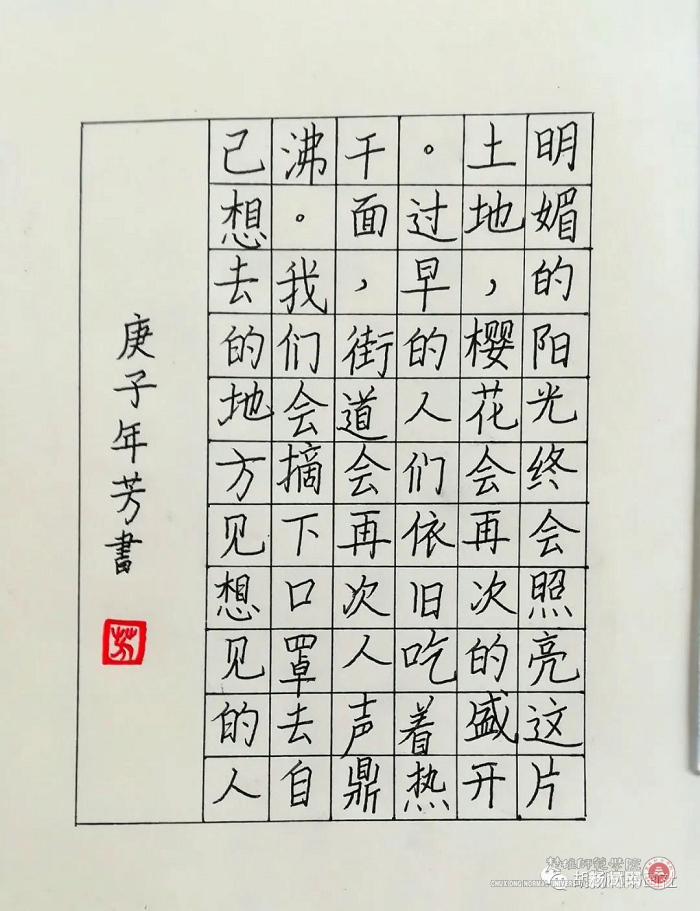 明媚的阳光终会照亮这片
土地,樱花会再次的盛开
。过早的人们依旧吃着热
干面,街道会再次人声鼎
沸。我们会摘下口罩去自
己想去的地方见想见的人
庚子年芳書
芳
楚雄師範學院